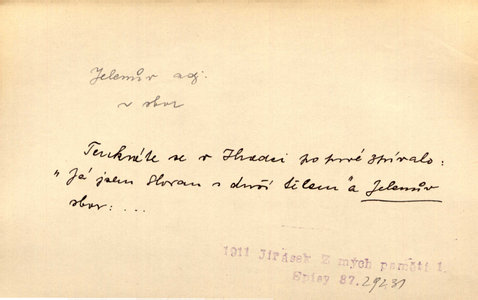 Jelenův adj.
v sbor
Tenkráte se v Hradci po prvé zpívalo:
"Já jsem Slovan s duší tělem" a Jelenův
sbor: ...
1911 Jirásek Z mých pamětí 1.
Spisy 37. 292.31